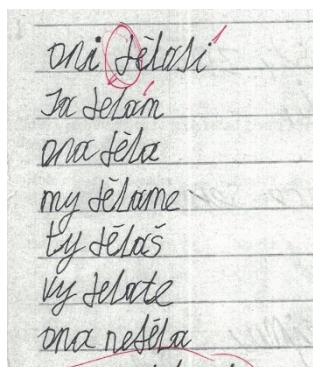 oni dělasí
Ja delám
ona děla
my dělame
ty dělaš
vy delate
ona neděla